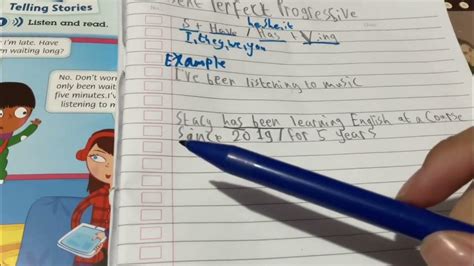 Telling Stories
Listen and read.
I'm late. Have
waiting long?
No. Don't wor
only been wait
five minutes. I've
listening to m
Perfect Progressive
he,she,it
S + Have / Has + Ving
I, they, we, you
Example
I've been listening to music
Stacy has been learning English at a Course
Since 2019 / for 5 years